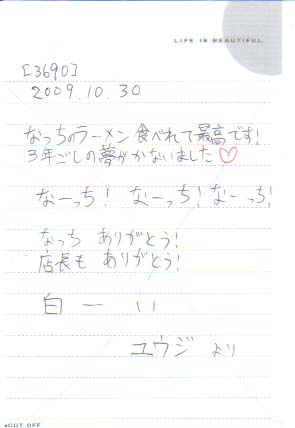 LIFE IS BEAUTIFUL
[3690]
2009.10.30
なっちのラーメン食べれて最高です!
3年ごしの夢がかないました♡
なーっち! なーっち! なーっち!
なっち ありがとう!
店長も ありがとう!
白 ー い
ユウジ より
CUT OFF